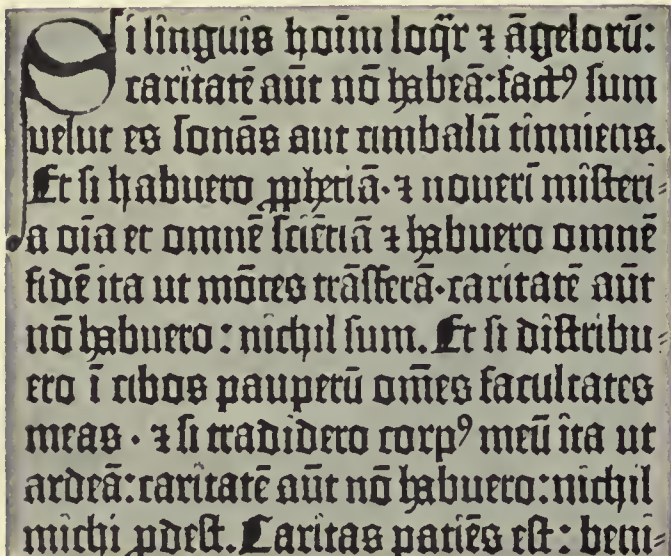 Si linguis hoīm loq̄r ⁊ āgelorū:
caritatē aūt nō habeā: fact⁹ sum
velut es sonās aut cimbalū tinniens.
Et si habuero ꝓphetiā· ⁊ noueri᷑ misteri⸗
a oīa et omnē sciētiā ⁊ habuero omnē
fidē ita ut mōtes trāsferā· caritatē aūt
nō habuero: nichil sum. Et si distribu⸗
ero ī cibos pauperū om̄es facultates
meas · ⁊ si tradidero corp⁹ meū ita ut
ardeā: caritatē aūt nō habuero: nichil
michi ꝓdest. Caritas patiēs est: beni⸗